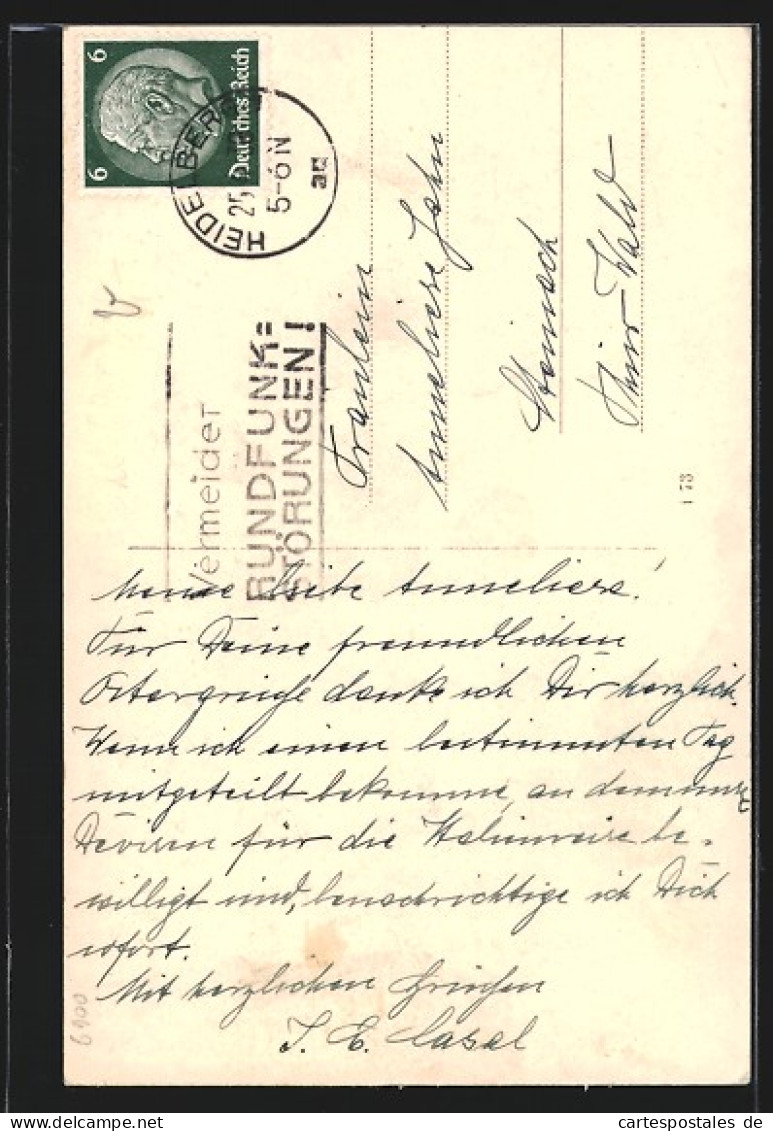 6 6
Deutsches Reich
HEIDELBERG
25
5-6 N
ad
Vermeidet
RUNDFUNK=
STÖRUNGEN!
Fräulein
Anneliese Jahn
Steinach
Thür. Wald
173
Meine liebe Anneliese!
Für Deine freundlichen
Ostergrüße danke ich Dir herzlich.
Wenn ich einen bestimmten Tag
mitgeteilt bekomme, an dem uns
Devisen für die Italienreise be-
willigt sind, benachrichtige ich Dich
sofort.
Mit herzlichen Grüßen
J. E. Casal
6900
cartespostales de